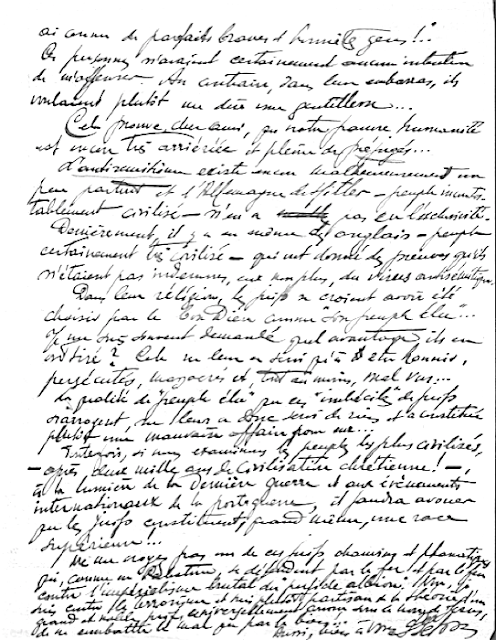 ai connu de parfaits braves et honnêtes gens!"
Ces personnes n'avaient certainement aucune intention
de m'offenser. Au contraire, dans leur embarras, ils
voulaient plutôt me dire une gentillesse...
Cela prouve, cher ami, que notre pauvre humanité
est encore très arriérée et pleine de préjugés...
L'antisémitisme existe encore malheureusement un
peu partout et l'Allemagne de Hitler - peuple incontes-
tablement civilisé - n'en a pas eu l'exclusivité.
Dernièrement, il y a eu même des anglais - peuple
certainement très civilisé - qui ont donné des preuves qu'ils
n'étaient pas indemnes, eux non plus, du virus antisémitique.
Dans leur religion, les juifs se croient avoir été
choisis par le Bon Dieu comme son peuple élu"...
Je me suis souvent demandé quel avantage ils en
ont tiré? Cela ne leur a servi qu'à être honnis,
persécutés, massacrés et, tout au moins, mal vus...
La qualité de "peuple élu" que ces "imbéciles" de juifs
s'arrogent, ne leur a donc servi de rien et a constitué
plutôt une mauvaise affaire pour eux...
Toutefois, si nous examinons les peuples les plus civilisés,
- après deux mille ans de civilisation chrétienne! -,
à la lumière de la dernière guerre et aux événements
internationaux de la postguerre, il faudra avouer
que les juifs constituent, quand même, une race
supérieure!...
Ne me croyez pas un de ces juifs chauvins et
qui, comme en Palestine, se défendent par le fer et par le feu
contre l'impérialisme brutal du perfide albion! Non, je
suis contre le terrorisme et suis plutôt partisan de la théorie d'un
grand et noble juif: universellement
de ne combattre le mal que par le bien...
Aussi, vive à